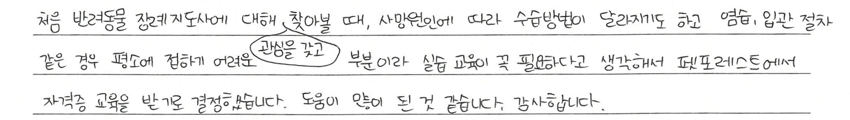 처음 반려동물 장례지도사에 대해 찾아볼 때, 사망원인에 따라 수습방법이 달라지기도 하고 염습, 입관 절차
관심을 갖고
같은 경우 평소에 접하기 어려운 부분이라 실습 교육이 꼭 필요하다고 생각해서 펫포레스트에서
자격증 교육을 받기로 결정했습니다. 도움이 많이 된 것 같습니다. 감사합니다.